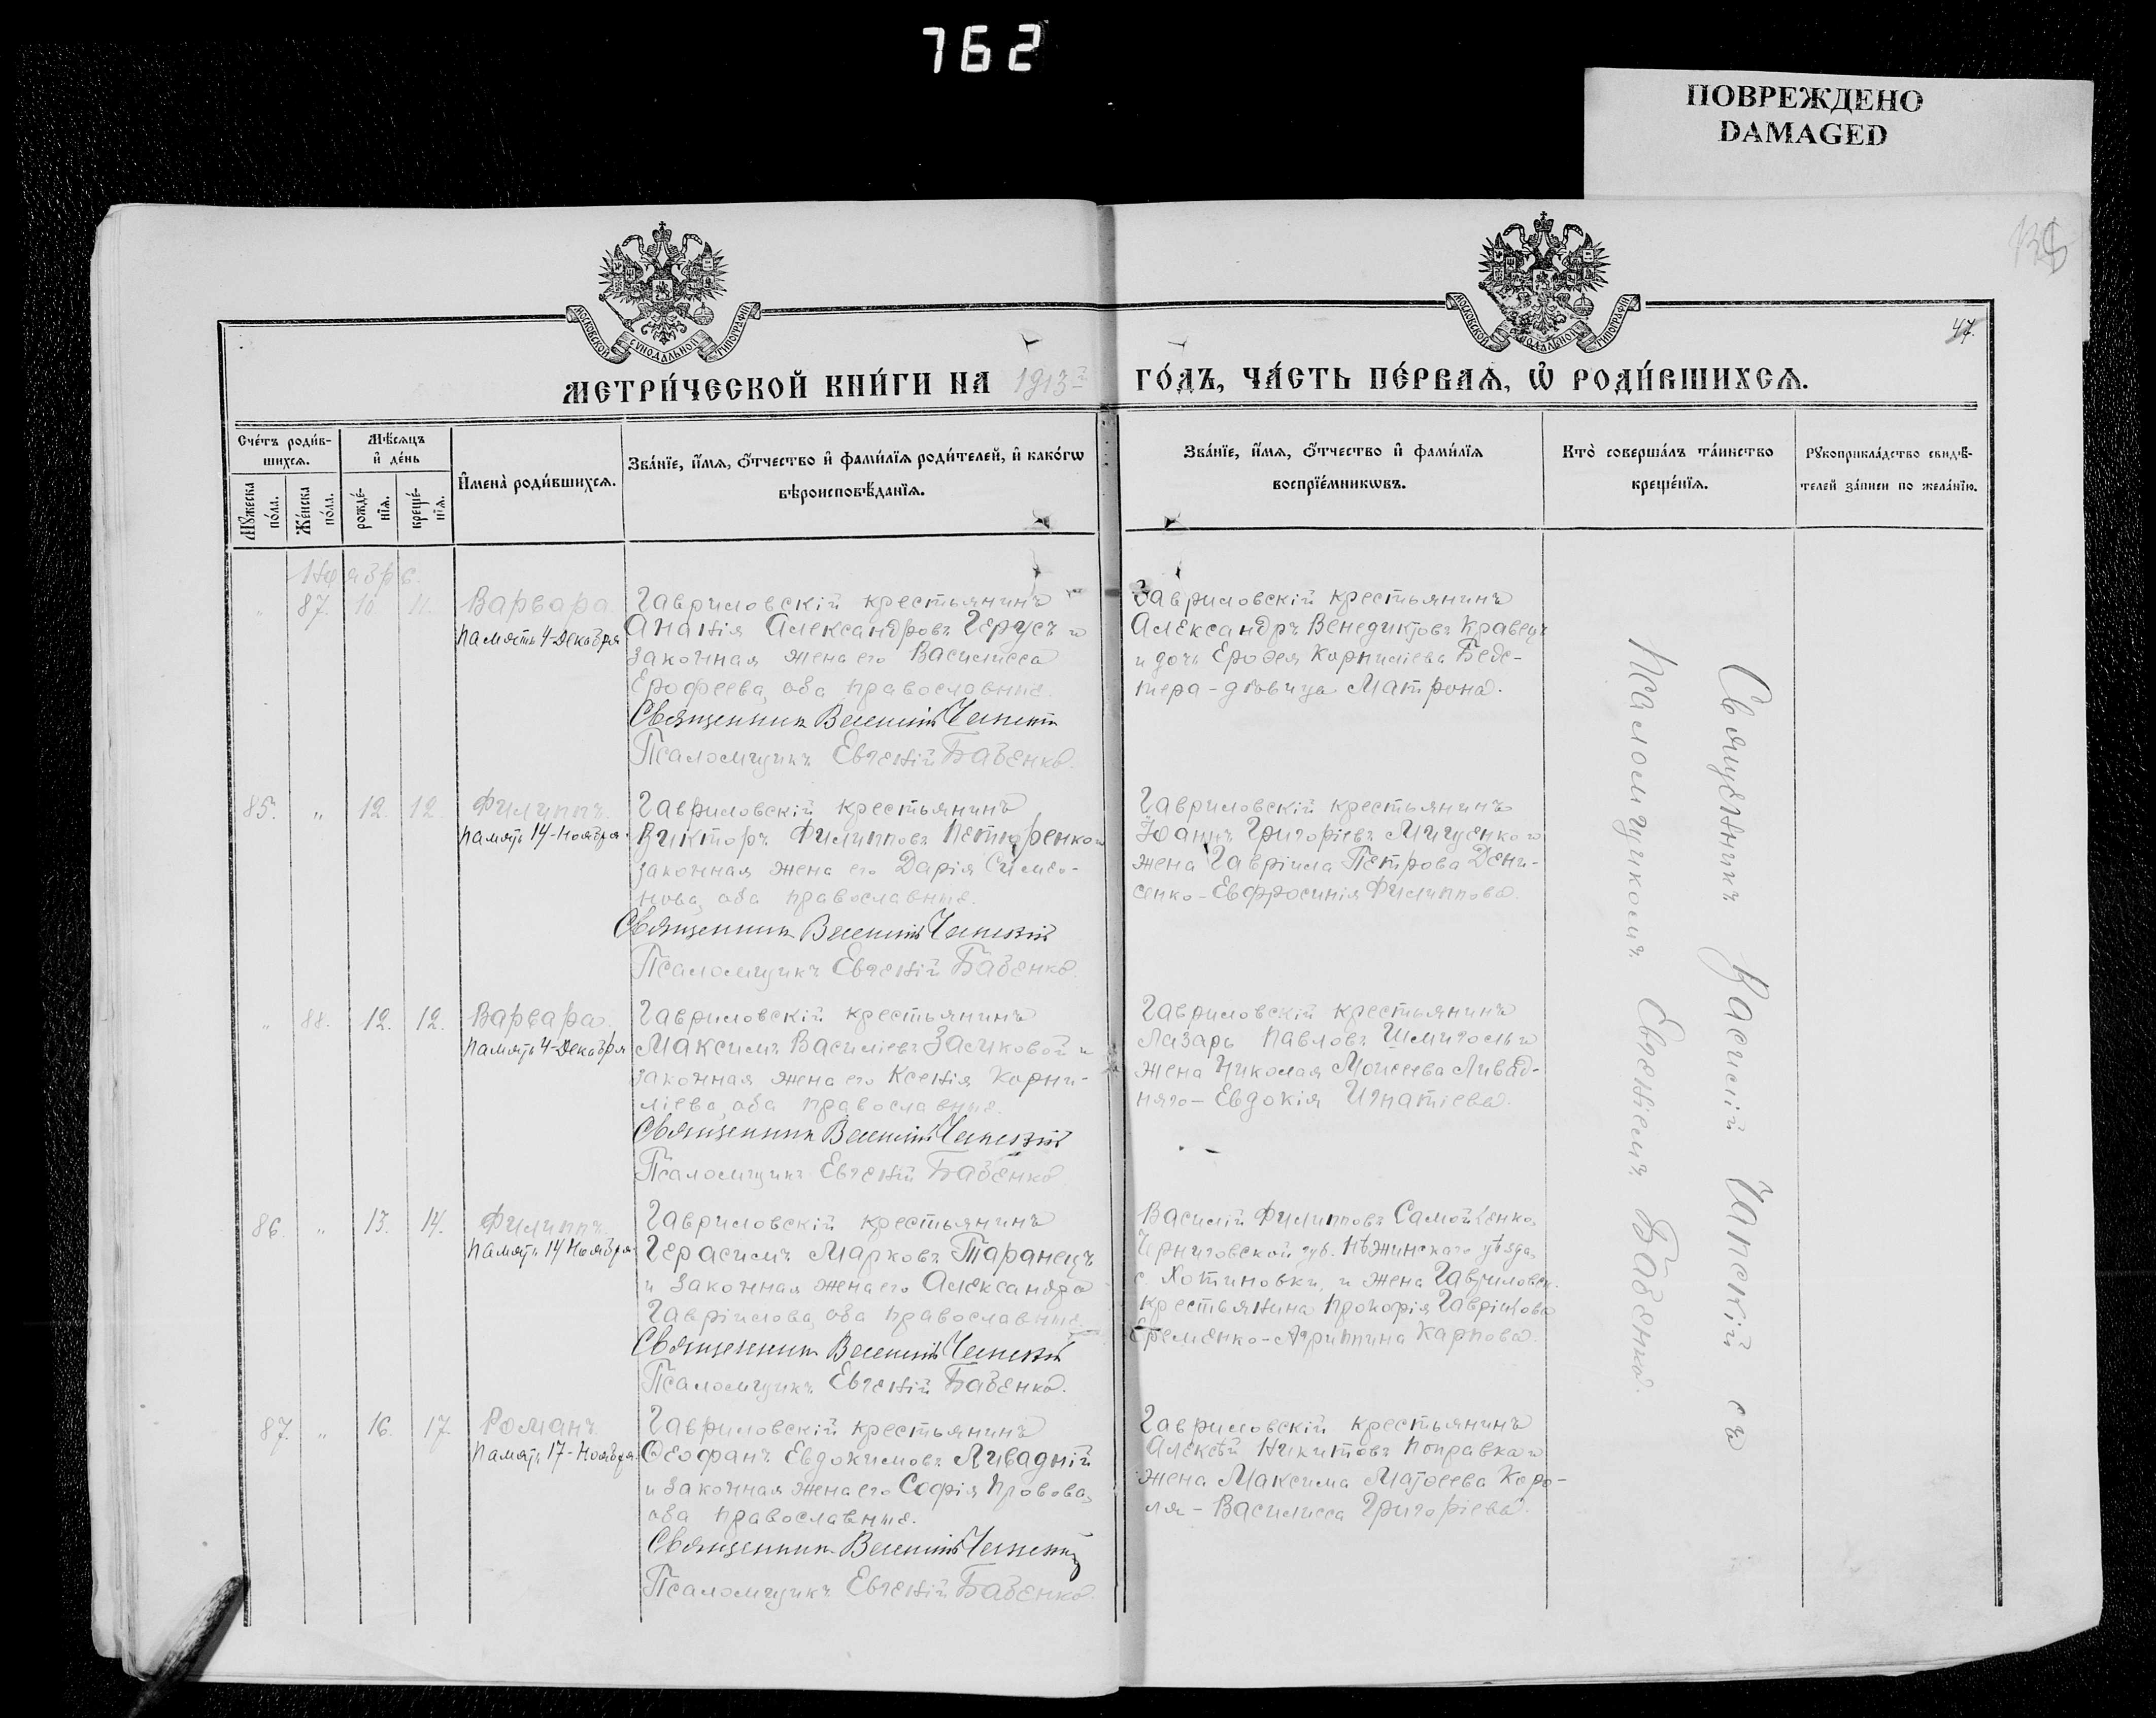 762
ПОВРЕЖДЕНО
DAMAGED
МОСКОВСКОЙ СУНОДАЛЬНОЙ ТИПОГРАФІИ
МОСКОВСКОЙ СУНОДАЛЬНОЙ ТИПОГРАФІИ
47.
МЕТРИ́ЧЕСКОЙ КНИ́ГИ НА 1913й ГО́ДЪ, ЧА́СТЬ ПЕ́РВАѦ, Ѡ҆ РОДИ́ВШИХСѦ.
Сче́тъ роди́в-
шихсѧ.
Мѣ́сѧцъ
и҆ де́нь
Мꙋ́жеска
по́ла.
Же́нска
по́ла.
рожде́-
нїѧ.
креще́-
нїѧ.
И҆мена̀ роди́вшихсѧ.
Зва́нїе, и҆́мѧ, ѻ҆́тчество и҆ фами́лїѧ роди́телей, и҆ како́гѡ
вѣроисповѣ́данїѧ.
Зва́нїе, и҆́мѧ, ѻ҆́тчество и҆ фами́лїѧ
воспрїе́мникѡвъ.
Кто̀ соверша́лъ та́инство
креще́нїѧ.
Рꙋкоприкла́дство свидѣ́-
телей за́писи по жела́нїю.
Ноябрь.
" 87. 10. 11. Варвара.
Память 4-Декабря
Гавриловскій крестьянинъ
Ананія Александровъ Герусъ и
законная жена его Василисса
Ерофеева, оба православные.
Священникъ Василій Чапскій
Псаломщикъ Евгеній Бабенко.
Гавриловскій крестьянинъ
Александръ Венедиктовъ Кравецъ
и дочь Ерофея Корниліева Беде-
пера - дѣвица Матрона.
85. " 12. 12. Филиппъ.
Память 14-Ноября.
Гавриловскій крестьянинъ
Викторъ Филипповъ Петюренко и
законная жена его Дарія Симео-
нова, оба православные.
Священникъ Василій Чапскій
Псаломщикъ Евгеній Бабенко.
Гавриловскій крестьянинъ
Іоаннъ Григоріевъ Мищенко и
жена Гавріила Петрова Дени-
сенко - Евфросинія Филиппова.
" 88. 12. 12. Варвара.
Память 4-Декабря
Гавриловскій крестьянинъ
Максимъ Василіевъ и
законная жена его Ксенія Корни-
ліева, оба православные.
Священникъ Василій Чапскій
Псаломщикъ Евгеній Бабенко.
Гавриловскій крестьянинъ
Лазарь Павловъ и
жена Николая Моисеева Ливад-
няго - Евдокія Игнатіева.
86. " 13. 14. Филиппъ.
Память 14 Ноября.
Гавриловскій крестьянинъ
Герасимъ Марковъ Таранецъ
и законная жена его Александра
Гавріилова, оба православные.
Священникъ Василій Чапскій
Псаломщикъ Евгеній Бабенко.
Василій Филипповъ Самойленко,
Черниговской губ. Нѣжинскаго уѣзда,
с. Хотиновки, и жена Гавриловск.
крестьянина Прокофія Гавріилова
Еременко - Агриппина Карпова.
87. " 16. 17. Романъ.
Память 17-Ноября.
Гавриловскій крестьянинъ
Ѳеофанъ Евдокимовъ Ливадній
и законная жена его Софія Провова,
оба православные.
Священникъ Василій Чапскій
Псаломщикъ Евгеній Бабенко.
Гавриловскій крестьянинъ
Алексѣй Никитовъ Поправка и
жена Максима Матѳеева Коро-
ля - Василисса Григоріева.
Священникъ Василій Чапскій съ
Псаломщикомъ Евгеніемъ Бабенко.